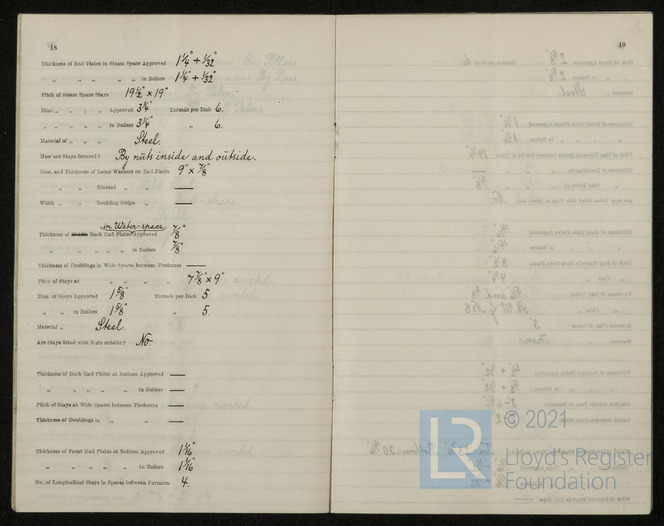 18
Thickness of End Plates in Steam Space Approved 1¼" + 1/32"
„ „ „ „ „ in Boilers 1¼" + 1/32"
Pitch of Steam Space Stays 19½" × 19"
Diar. „ „ „ „ Approved 3¾" Threads per Inch 6.
„ „ „ „ in Boilers 3¾" „ 6.
Material of „ „ „ Steel.
How are Stays Secured? By nuts inside and outside.
Diar. and Thickness of Loose Washers on End Plates 9" × 7/8"
„ „ Riveted „ „ —
Width „ Doubling Strips „ —
in Water-space
Thickness of Middle Back End Plates Approved 7/8"
„ „ „ „ „ in Boilers 7/8"
Thickness of Doublings in Wide Spaces between Fireboxes —
Pitch of Stays at „ „ „ „ 7 7/8" × 9"
Diar. of Stays Approved 1 5/8" Threads per Inch 5
„ „ in Boilers 1 5/8" „ 5.
Material „ Steel.
Are Stays fitted with Nuts outside? No.
Thickness of Back End Plates at Bottom Approved —
„ „ „ „ „ in Boilers —
Pitch of Stays at Wide Spaces between Fireboxes —
Thickness of Doublings in „ „ —
Thickness of Front End Plates at Bottom Approved 1 1/16"
„ „ „ „ „ in Boilers 1 1/16"
No. of Longitudinal Stays in Spaces between Furnaces 4.
19
LR © 2021
Lloyd's Register
Foundation